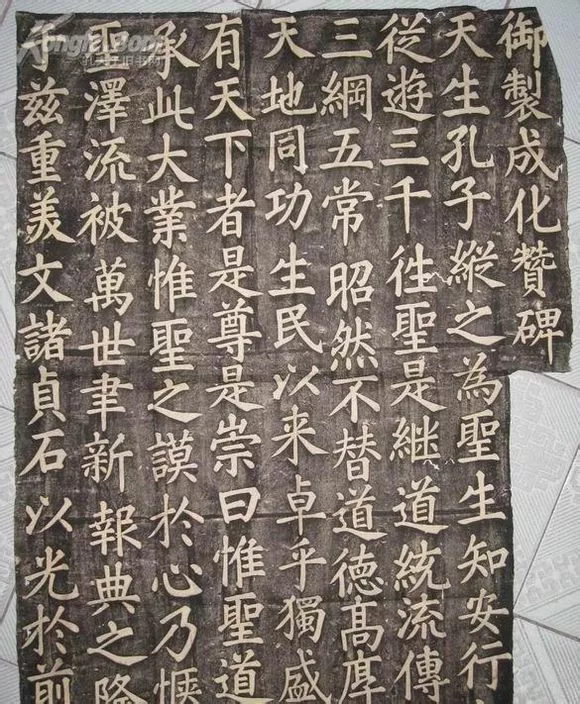 御製成化贊碑
天生孔子縱之為聖生知安行
從遊三千徃聖是継道統流傳
三綱五常昭然不替道德髙厚
天地同功生民以来卓乎獨盛
有天下者是尊是崇曰惟聖道
承此大業惟聖之謨於心乃愜
聖澤流被萬世聿新報典之隆
于兹重美文諸貞石以光於前